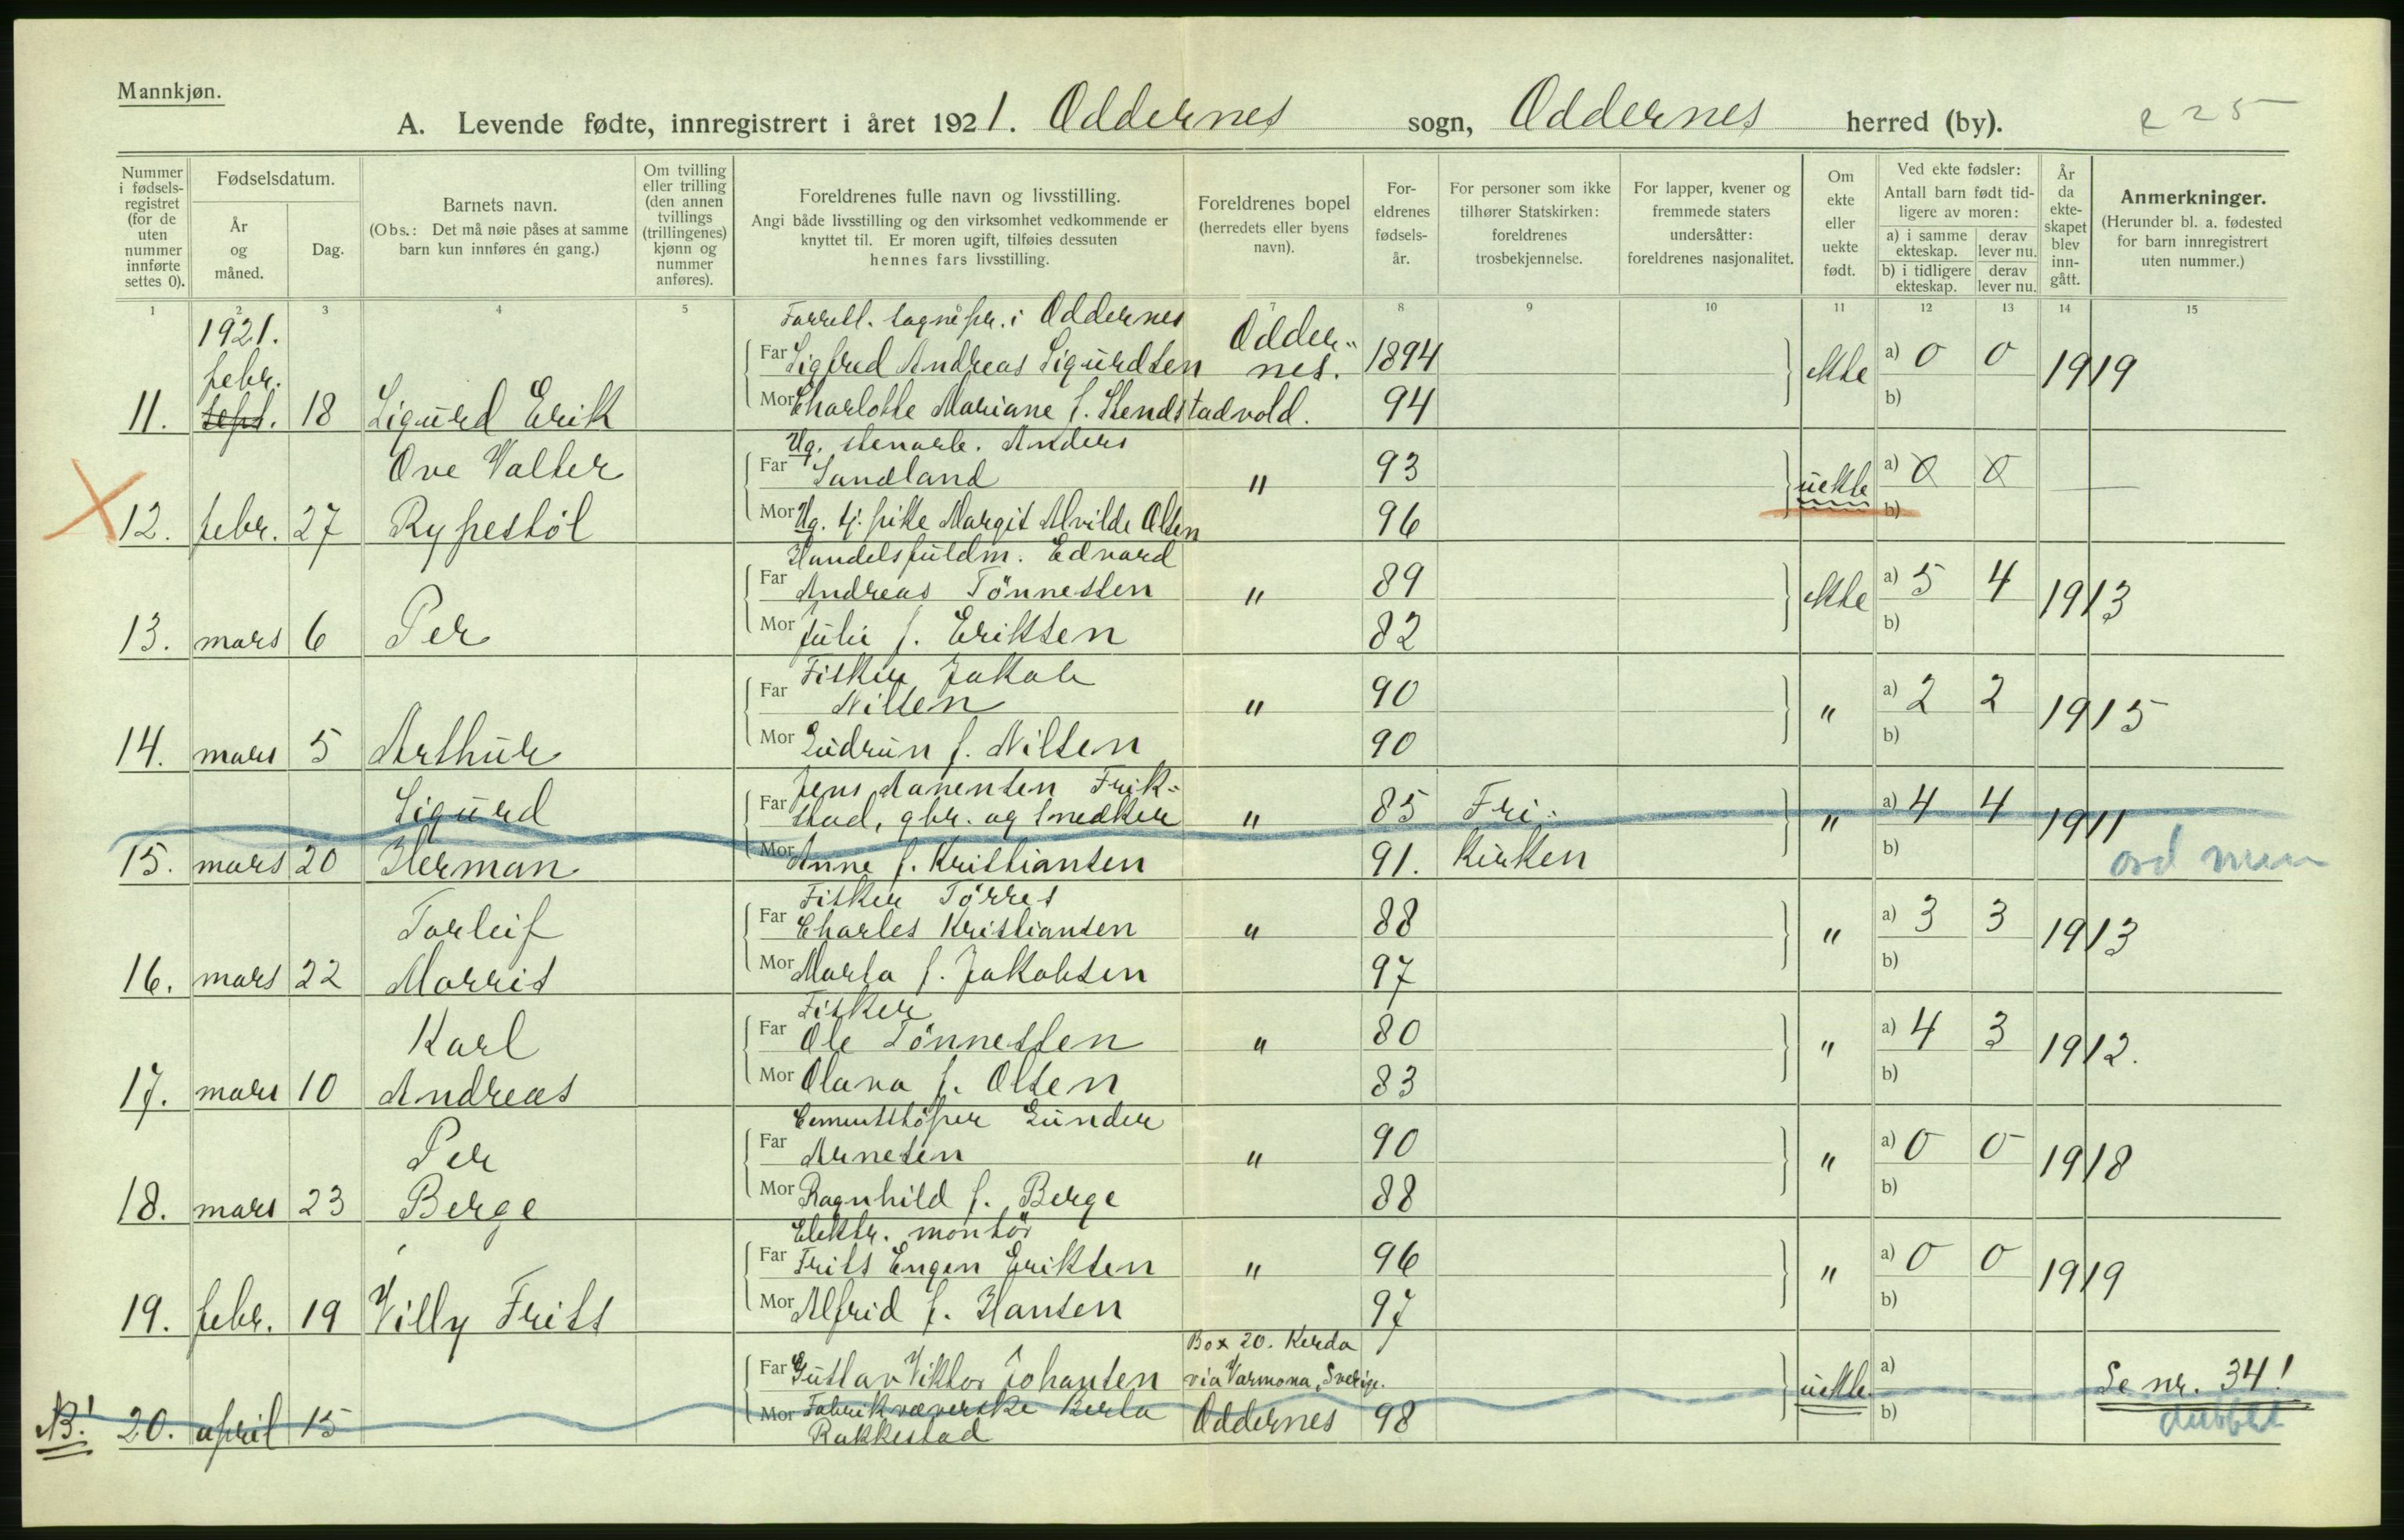 Mannkjøn.
A. Levende fødte, innregistrert i året 1921. Oddernes sogn, Oddernes herred (by).
225
Nummer i fødsels-registret (for de uten nummer innførte settes 0).
Fødselsdatum.
År og måned.
Dag.
Barnets navn.
(Obs.: Det må nøie påses at samme barn kun innføres én gang.)
Om tvilling eller trilling (den annen tvillings (trillingenes) kjønn og nummer anføres).
Foreldrenes fulle navn og livsstilling.
Angi både livsstilling og den virksomhet vedkommende er knyttet til. Er moren ugift, tilføies dessuten hennes fars livsstilling.
Foreldrenes bopel (herredets eller byens navn).
For-eldrenes fødsels-år.
For personer som ikke tilhører Statskirken: foreldrenes trosbekjennelse.
For lapper, kvener og fremmede staters undersåtter: foreldrenes nasjonalitet.
Om ekte eller uekte født.
Ved ekte fødsler: Antall barn født tid-ligere av moren:
a) i samme ekteskap.
derav lever nu.
b) i tidligere ekteskap.
derav lever nu.
År da ekte-skapet blev inn-gått.
Anmerkninger.
(Herunder bl. a. fødested for barn innregistrert uten nummer.)
1 2 3 4 5 7 8 9 10 11 12 13 14 15
1921.
febr.
11. sept. 18 Sigurd Erik
sognepr. i Oddernes
Far Sigfred Andreas Sigurdsen Odder-nes. 1894 ekte a) 0 0 1919
Mor Charlotte Mariane f. Stendstadvold. 94 b)
Ove Walter
12. febr. 27 Rypestöl
Ug. stenarb. Anders
Far Sandland " 93 uekte a) 0 0 —
Mor Ug. tj. pike Margit Alvilde Olsen 96 b)
13. mars 6 Per
Handelsfuldm. Edvard
Far Andreas Tönnessen " 89 ekte a) 5 4 1913
Mor Julie f. Eriksen 82 b)
14. mars 5 Arthur
Fisker Jakob
Far Nilsen " 90 " a) 2 2 1915
Mor Gudrun f. Nilsen 90 b)
Sigurd
15. mars 20 Herman
Jens Aanensen Frik-
Far stad, gbr. og snedker " 85 Fri- " a) 4 4 1911
Mor Anne f. Kristiansen 91. kirken b)
Torleif
16. mars 22 Morris
Fisker Törres
Far Charles Kristiansen " 88 " a) 3 3 1913
Mor Marta f. Jakobsen 97 b)
Karl
17. mars 10 Andreas
Fisker
Far Ole Tönnessen " 80 " a) 4 3 1912.
Mor Olava f. Olsen 83 b)
Per
18. mars 23 Berge
Cementstöper Gunder
Far Arnesen " 90 " a) 0 0 1918
Mor Ragnhild f. Berge 88 b)
19. febr. 19 Willy Frits
Elektr. montör
Far Frits Engen Eriksen " 96 " a) 0 0 1919
Mor Alfrid f. Hansen 97 b)
NB! 20. april 15
Box 20. Kerda
Far Gustav Viktor Johansen via Varmona, Sverige. uekte a) Se nr. 34!
Mor Fabrikvæverske Berta Oddernes 98 b) dubblet
Rakkestad